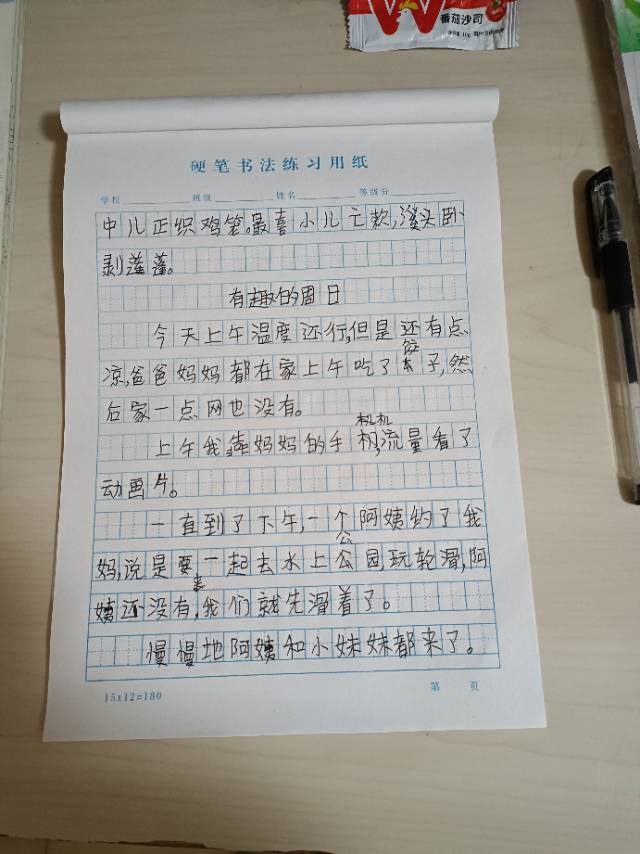 番茄沙司
硬笔书法练习用纸
学校 班级 姓名 等级分
中儿正织鸡笼。最喜小儿亡赖,溪头卧
剥莲蓬。
有趣的周日
今天上午温度还行,但是还有点
凉,爸爸妈妈都在家上午吃了饺子,然
后家一点网也没有。
上午我靠妈妈的手机,流量看了
动画片。
一直到了下午,一个阿姨约了我
妈,说是要一起去水上公园,玩轮滑,阿
姨还没有来,我们就先滑着了。
慢慢地阿姨和小妹妹都来了。
15x12=180
第 页